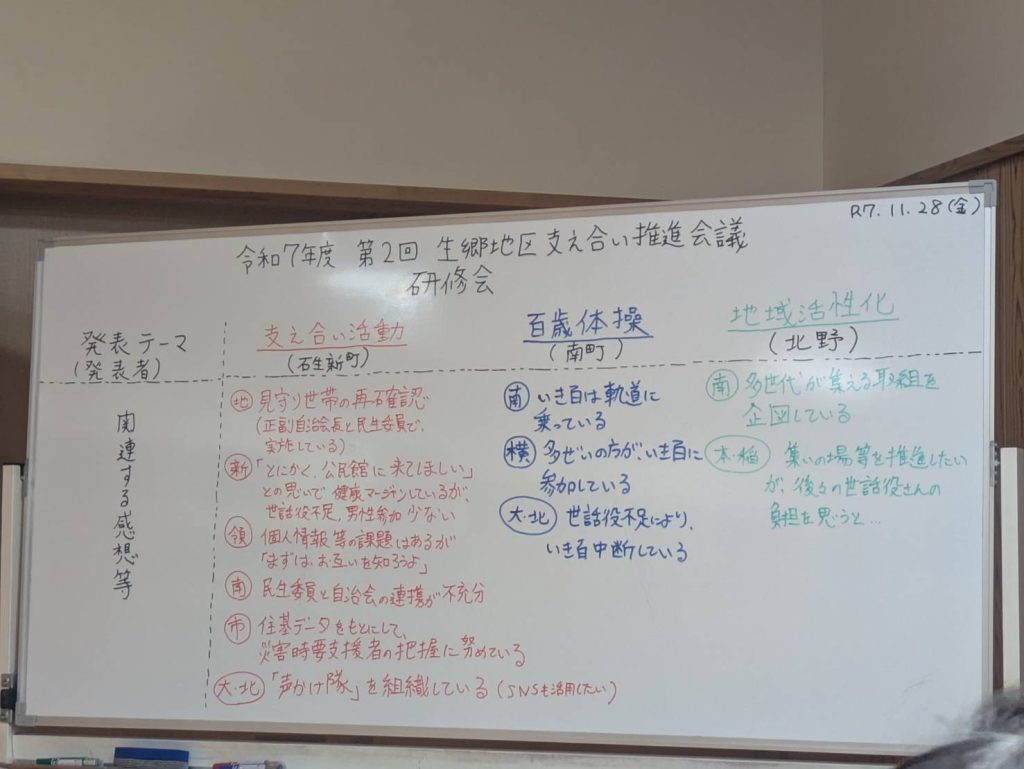 R7.11.28(金)
令和7年度 第2回 生郷地区支え合い推進会議
研修会
発表テーマ
(発表者)
支え合い活動
(石生新町)
百歳体操
(南町)
地域活性化
(北野)
関連する感想等
地 見守り世帯の再確認
(正副自治会長と民生委員で、
実施している)
新 「とにかく、公民館に来てほしい」
との思いで 健康マージャンしているが、
世話役不足、男性参加 少ない
領 個人情報等の課題はあるが
「まずは、お互いを知ろうよ」
南 民生委員と自治会の連携が不充分
市 住基データをもとにして、
災害時要支援者の把握に努めている
大・北 「声かけ隊」を組織している(SNSも活用したい)
南 いき百は軌道に
乗っている
横 多ぜいの方が、いき百に
参加している
大・北 世話役不足により、
いき百中断している
南 多世代が集える取組を
企図している
本・稲 集いの場等を推進したい
が、後々の世話役さんの
負担を思うと…